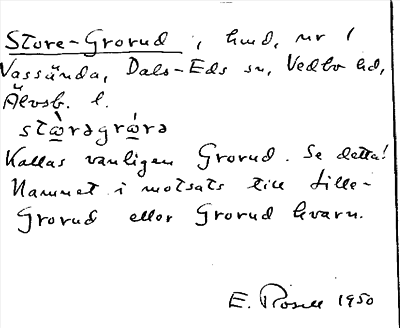 Store-Grorud, hmd, nr 1
Vassända, Dals-Eds sn, Vedbo hd,
Älvsb. l.
stæ̀rəgrǽrə
Kallas vanligen Grorud. Se detta!
Namnet i motsats till Lille-
Grorud eller Grorud kvarn.
E. Rosell 1950